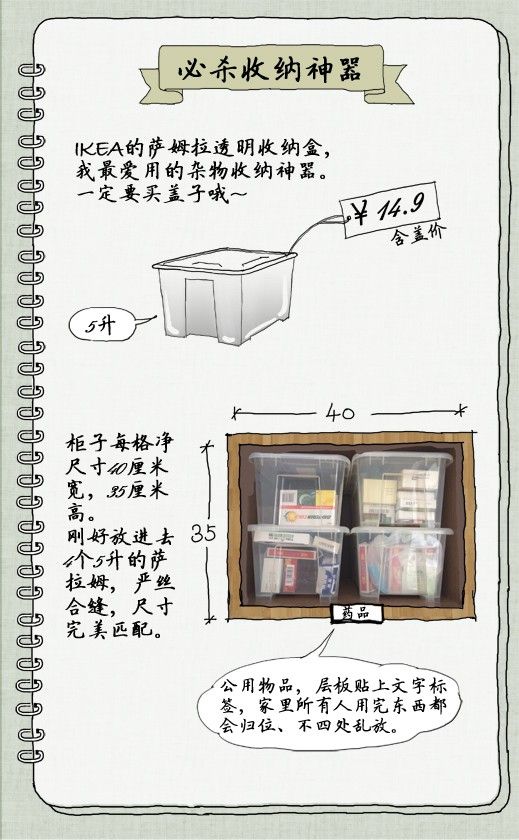 必杀收纳神器
IKEA的萨姆拉透明收纳盒，
我最爱用的杂物收纳神器。
一定要买盖子哦～
￥14.9
含盖价
5升
40
柜子每格净
尺寸40厘米
宽，35厘米
高。
刚好放进去
4个5升的萨
拉姆，严丝
合缝，尺寸
完美匹配。
35
药品
公用物品，层板贴上文字标
签，家里所有人用完东西都
会归位、不四处乱放。